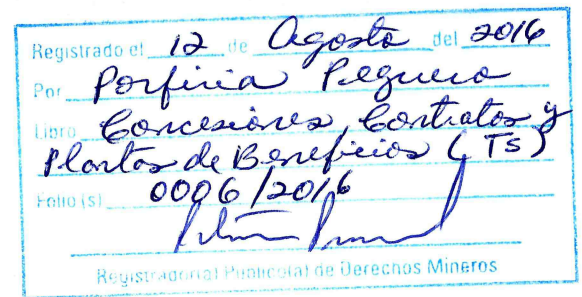 Registrado el 12 de Agosto del 2016
Por Porfiria Peguero
Libro Concesiones, Contratos y
Plantas de Beneficios (Ts)
Folio (s) 0006/2016
Registrador(a) Público(a) de Derechos Mineros